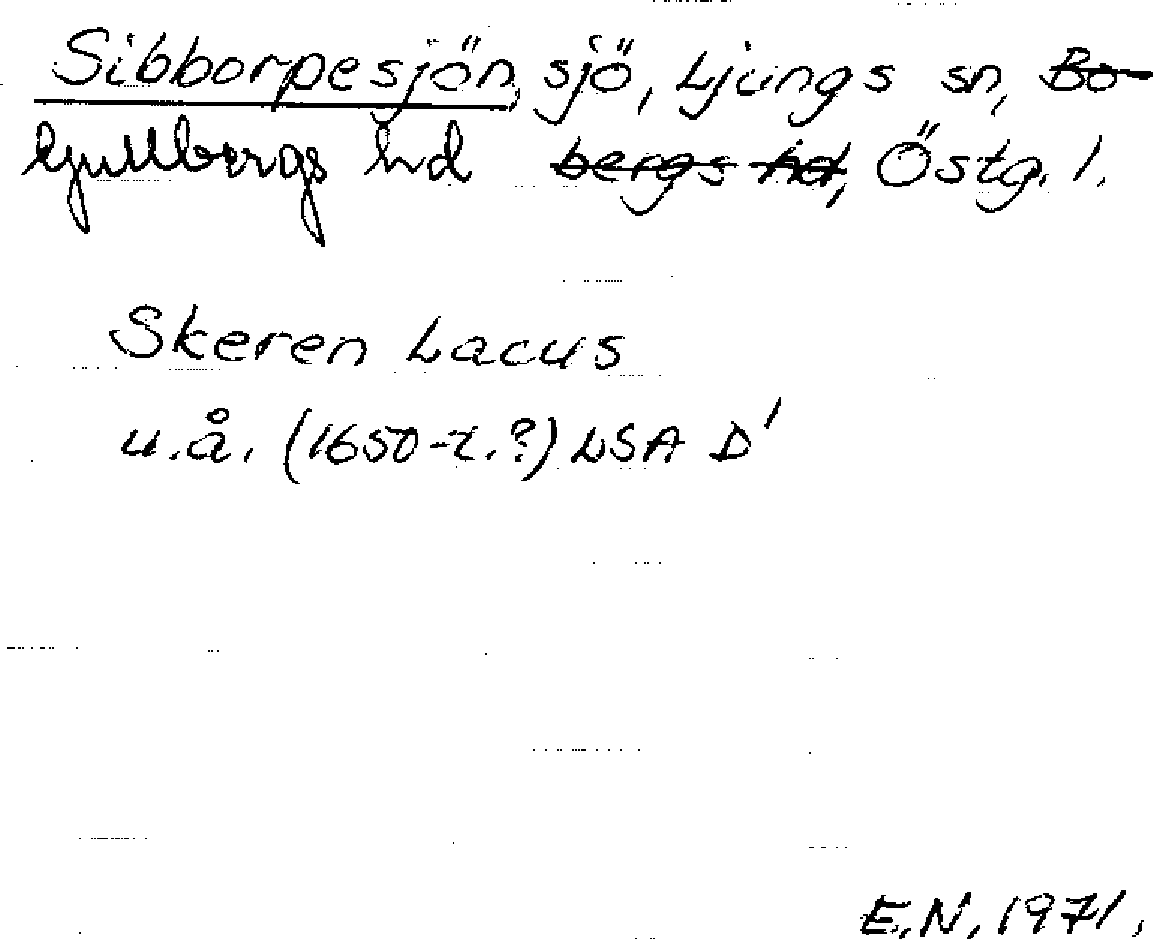 Sibborpesjön, sjö, Ljungs sn, Bo-
Gullbergs hd bergs hd, Östg. l.
Skeren Lacus
u.å. (1650-t.?) LSA D¹
E.N. 1971.